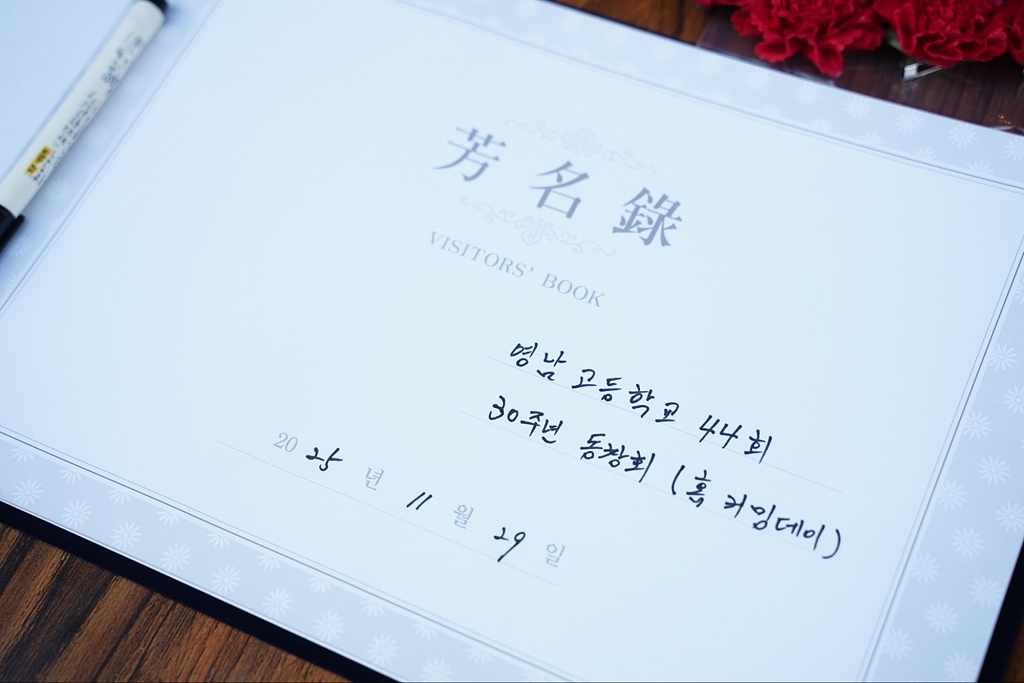 芳名錄
VISITORS' BOOK
영남 고등학교 44회
30주년 동창회 (홈 커밍데이)
2025년 11월 29일